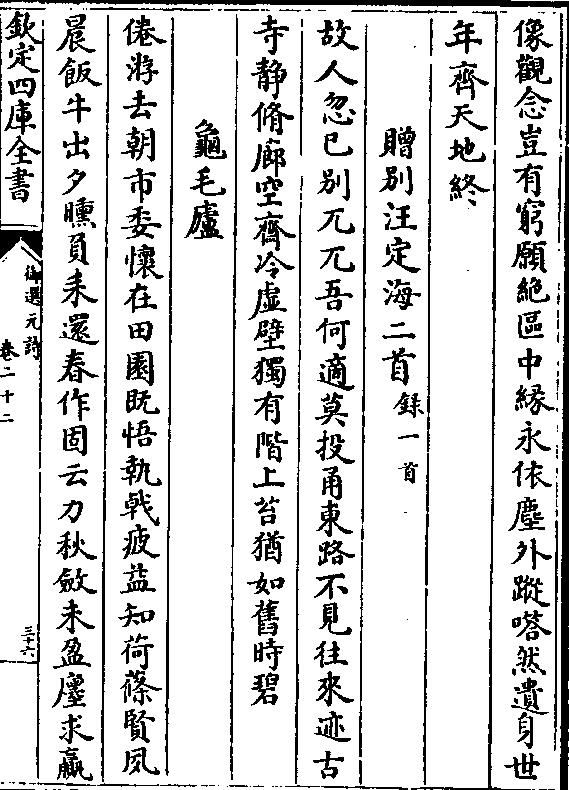 像觀念豈有窮願絶區中縁永依塵外蹤嗒然遺身世
年齊天地終
贈别汪定海二首錄一首
故人忽已别兀兀吾何適莫投甬東路不見往來迹古
寺靜脩廊空齋冷虚壁獨有階上苔猶如舊時碧
龜毛廬
倦游去朝市委懷在田園既悟執㦸疲益知荷蓧賢夙
晨飯牛出夕曛負耒還春作固云力秋斂未盈廛求贏
欽定四庫全書
御選元詩
卷二十二
三十六